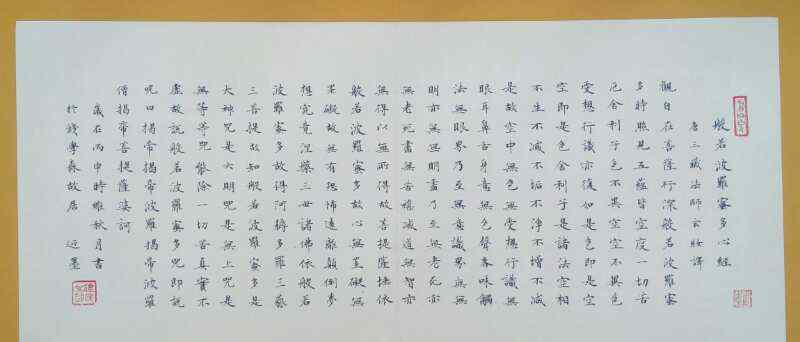 般若波羅蜜多心經
唐三藏法師玄奘譯
觀自在菩薩行深般若波羅蜜
多時照見五蘊皆空度一切苦
厄舍利子色不異空空不異色
受想行識亦復如是色即是空
空即是色舍利子是諸法空相
不生不滅不垢不淨不增不減
是故空中無色無受想行識無
眼耳鼻舌身意無色聲香味觸
法無眼界乃至無意識界無無
明亦無無明盡乃至無老死亦
無老死盡無苦集滅道無智亦
無得以無所得故菩提薩埵依
般若波羅蜜多故心無罣礙無
罣礙故無有恐怖遠離顛倒夢
想究竟涅槃三世諸佛依般若
波羅蜜多故得阿耨多羅三藐
三菩提故知般若波羅蜜多是
大神咒是大明咒是無上咒是
無等等咒能除一切苦真實不
虛故說般若波羅蜜多咒即說
咒曰揭帝揭帝波羅揭帝波羅
僧揭帝菩提薩婆訶
歲在丙申時維秋月書
於錢學森故居 近墨